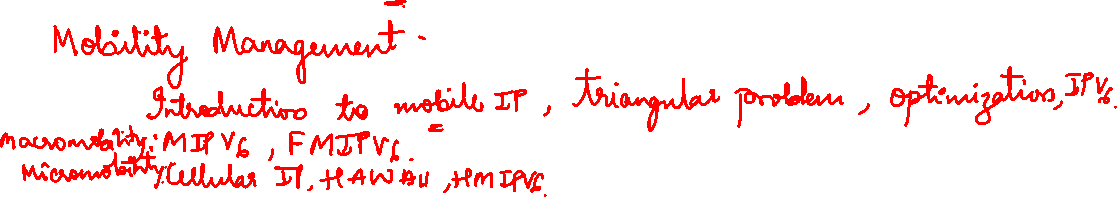 Mobility Management.
Introduction to mobile IP, triangular problem, optimization, IPV6.
Macromobility: MIPV6, FMIPV6.
Micromobility: Cellular IP, HAWAII, HMIPV6.